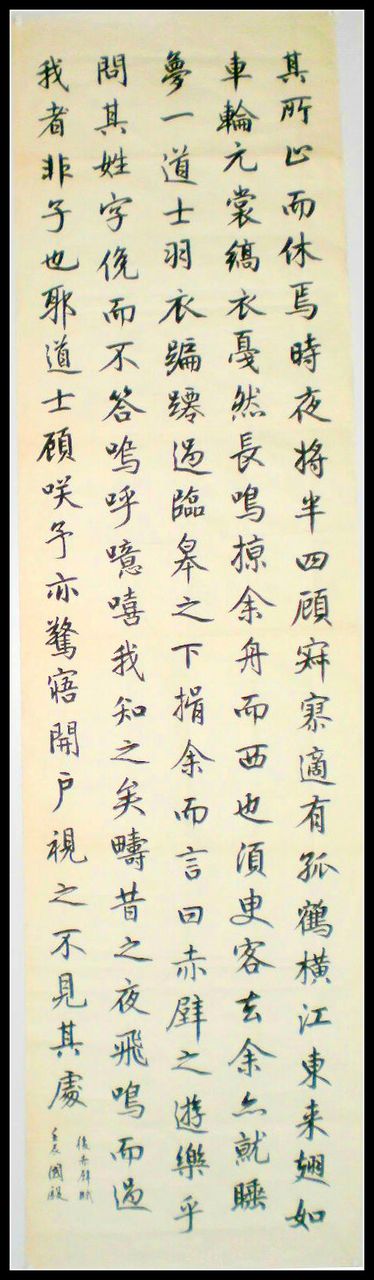 其所止而休焉時夜将半四顧寂寥適有孤鶴横江東来翅如
車輪元裳縞衣戛然長鳴掠余舟而西也須臾客去余亦就睡
夢一道士羽衣蹁躚過臨皋之下揖余而言曰赤壁之遊樂乎
問其姓字俛而不答嗚呼噫嘻我知之矣疇昔之夜飛鳴而過
我者非子也耶道士顧咲予亦驚寤開户視之不見其處
後赤壁賦
壬辰國殷